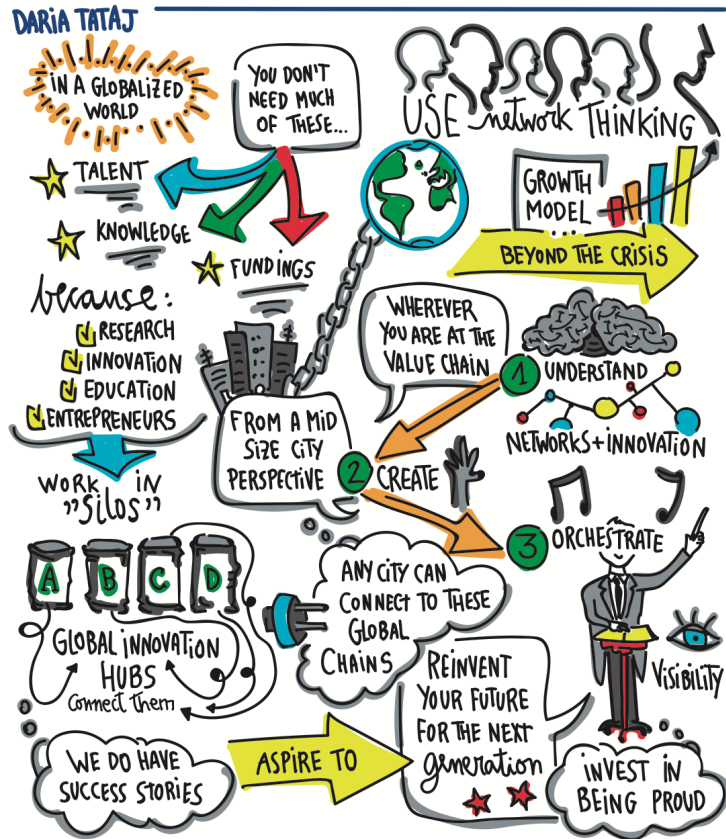 DARIA TATAJ
IN A GLOBALIZED
WORLD
YOU DON'T
NEED MUCH
OF THESE...
USE network THINKING
TALENT
KNOWLEDGE
FUNDINGS
GROWTH
MODEL
...
BEYOND THE CRISIS
because:
RESEARCH
INNOVATION
EDUCATION
ENTREPRENEURS
WORK IN
"SILOS"
WHEREVER
YOU ARE AT THE
VALUE CHAIN
1 UNDERSTAND
NETWORKS+INNOVATION
FROM A MID
SIZE CITY
PERSPECTIVE
2 CREATE
3 ORCHESTRATE
A B C D
GLOBAL INNOVATION
HUBS
Connect them
ANY CITY CAN
CONNECT TO THESE
GLOBAL
CHAINS
VISIBILITY
WE DO HAVE
SUCCESS STORIES
ASPIRE TO
REINVENT
YOUR FUTURE
FOR THE NEXT
generation
INVEST IN
BEING PROUD